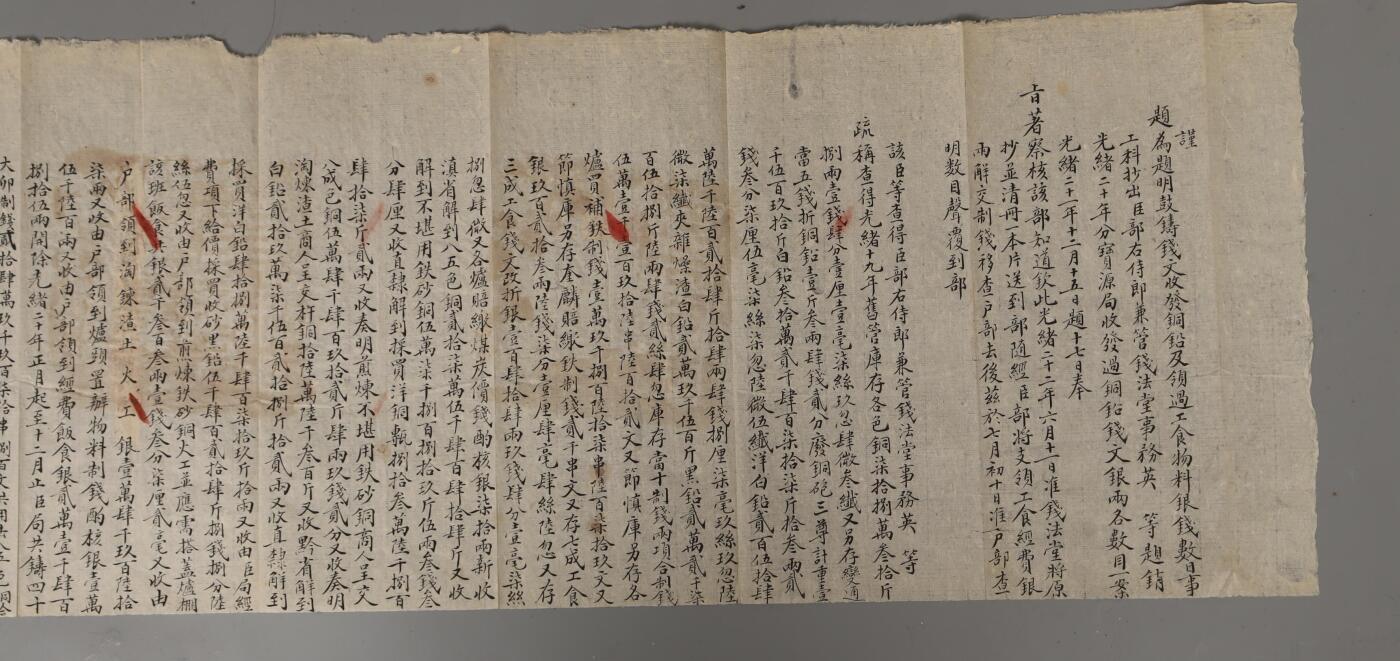 謹
題為題明鼓鑄錢文收發銅鉛及領過工食物料銀錢數目事
工科抄出臣部右侍郎兼管錢法堂事務英　等題銷
光緒二十年分寶源局收發過銅鉛錢文銀兩各數目一案
光緒二十一年十二月十五日題十七日奉
旨著察核該部知道欽此光緒二十二年六月十一日准錢法堂將原
抄並清冊一本片送到部隨經臣部將支領工食經費銀
兩解交制錢移查戶部去後茲於七月初十日准戶部查
明數目聲覆到部
該臣等查得臣部右侍郎兼管錢法堂事務英　等
疏稱查得光緒十九年舊管庫存各色銅柒拾捌萬叁拾斤
捌兩壹錢肆分壹厘壹毫柒絲玖忽肆微叁纖又另存變通
當五錢折銅鉛壹斤叁兩肆錢貳分廢銅砲三尊計重壹
千伍百玖拾斤白鉛叁拾萬貳千肆百柒拾柒斤拾叁兩貳
錢叁分柒厘伍毫柒絲柒忽陸微伍纖洋白鉛貳百伍拾肆
萬陸千陸百貳拾肆斤拾肆兩肆錢捌厘柒毫玖絲玖忽陸
微柒纖夾雜燥渣白鉛貳萬玖千伍百斤黑鉛貳萬貳千柒
百伍拾捌斤陸兩肆錢貳絲肆忽庫存當十制錢兩項合制錢
伍萬壹千壹百玖拾陸串陸百拾貳文又節慎庫另存各
爐買補鉄制錢壹萬玖千捌百陸拾柒串陸百柒拾玖文又
節慎庫另存奎麟賠繳鉄制錢貳千串文又存七成工食
銀玖百貳拾叁兩陸錢柒分壹厘肆毫肆絲陸忽又存
三成工食錢文改折銀壹百肆拾肆兩玖錢肆分壹毫柒絲
捌忽肆微又各爐賠繳煤炭價錢酌核銀柒拾兩新收
滇省解到八五色銅貳拾柒萬伍千肆百肆拾肆斤又收
解到不堪用鉄砂銅伍萬柒千捌百捌拾玖斤伍兩叁錢叁
分肆厘又收直隸解到採買洋銅甎捌拾叁萬陸千捌百
肆拾柒斤貳兩又收奏明煎煉不堪用鉄砂銅商人呈交
八成色銅伍萬肆千肆百玖拾貳斤肆兩玖錢貳分又收奏明
淘煉渣土商人呈交杵銅拾陸萬陸千叁百斤又收黔省解到
白鉛貳拾玖萬柒千伍百貳拾捌斤拾貳兩又收直隸解到
採買洋白鉛肆拾捌萬陸千肆百柒拾玖斤拾兩又收由臣局經
費項下給價採買收砂黑鉛伍千肆百貳拾肆斤捌錢捌分陸
絲伍忽又收由戶部領到煎煉鉄砂銅火工並應需搭蓋爐棚
該班飯食共銀貳千叁百叁兩壹錢叁分柒厘貳毫又收由
戶部領到淘鍊渣土火工　銀壹萬肆千玖百陸拾
柒兩又收由戶部領到爐頭置辦物料制錢酌核銀壹萬
伍千陸百兩又收由戶部領到經費飯食銀貳萬壹千肆百
捌拾伍兩開除光緒二十年正月起至十二月止臣局共鑄四十
大卯制錢貳拾肆萬玖千玖百柒拾串捌百文共用